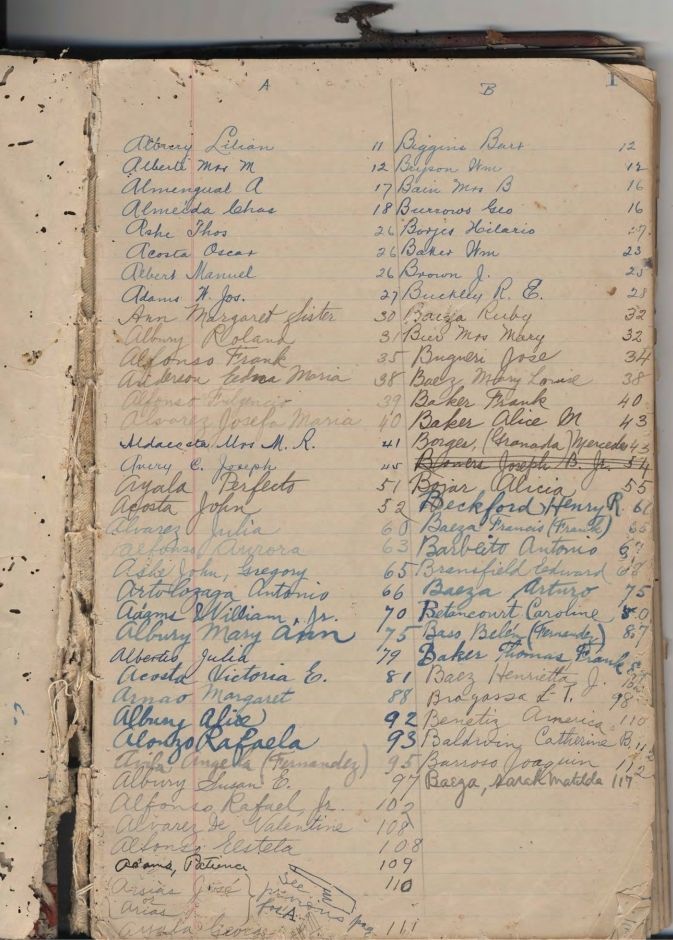 A
Albury Lilian 11
Alberte Mrs M 12
Almengual A 17
Almeida Chas 18
Ashe Thos 26
Acosta Oscar 26
Albert Manuel 26
Adams W. Jos. 27
Ann Margaret Sister 30
Albury Roland 31
Alfonso Frank 35
Anderson Edna Maria 38
Alfonso Fulgencio 39
Alvarez Josefa Maria 40
Aldacosta Mrs M. R. 41
Avery C. Joseph 45
Ayala Perfecto 51
Acosta John 52
Alvarez Julia 60
Alfonso Aurora 63
Ashe John, Gregory 65
Artolozaga Antonio 66
Adams William, Jr. 70
Albury Mary Ann 75
Albertis Julia 79
Acosta Victoria E. 81
Arnao Margaret 88
Albury Alice 92
Alonzo Rafaela 93
Angela (Fernandez) 95
Albury Susan E. 97
Alfonso, Rafael, Jr. 102
Alvarez de Valentine 108
Alfonso Estela 108
Adams, Patience 109
Arsias José 110
or
Arias
See previous page for A
Ayala 111
B
1
Biggins Bart 12
Bryson Wm 12
Bain Mrs B 16
Burrows Geo 16
Borjes Hilario
Baker Wm 23
Brown J. 25
Buckley R. E. 28
Baeza Ruby 32
Bier Mrs Mary 32
Bugueri Jose 34
Baez Mary Louise 38
Baker Frank 40
Baker Alice M 43
Borges, (Granada) Mercedes 43
Joseph B. Jr. 54
Bojar Alicia 55
Beckford Henry R. 61
Baeza Francis (Frank) 65
Barbeito Antonio 67
Bransfield Edward 68
Baeza, Arturo 75
Betancourt Caroline 80
Bass, Belén (Fernandez) 87
Baker Thomas Frank
Baez Henrietta J.
Bragassa L T. 98
Benetiz America 110
Baldwin Catherine B. 112
Barroso Joaquin 112
Baeza, Sarah Matilda 117